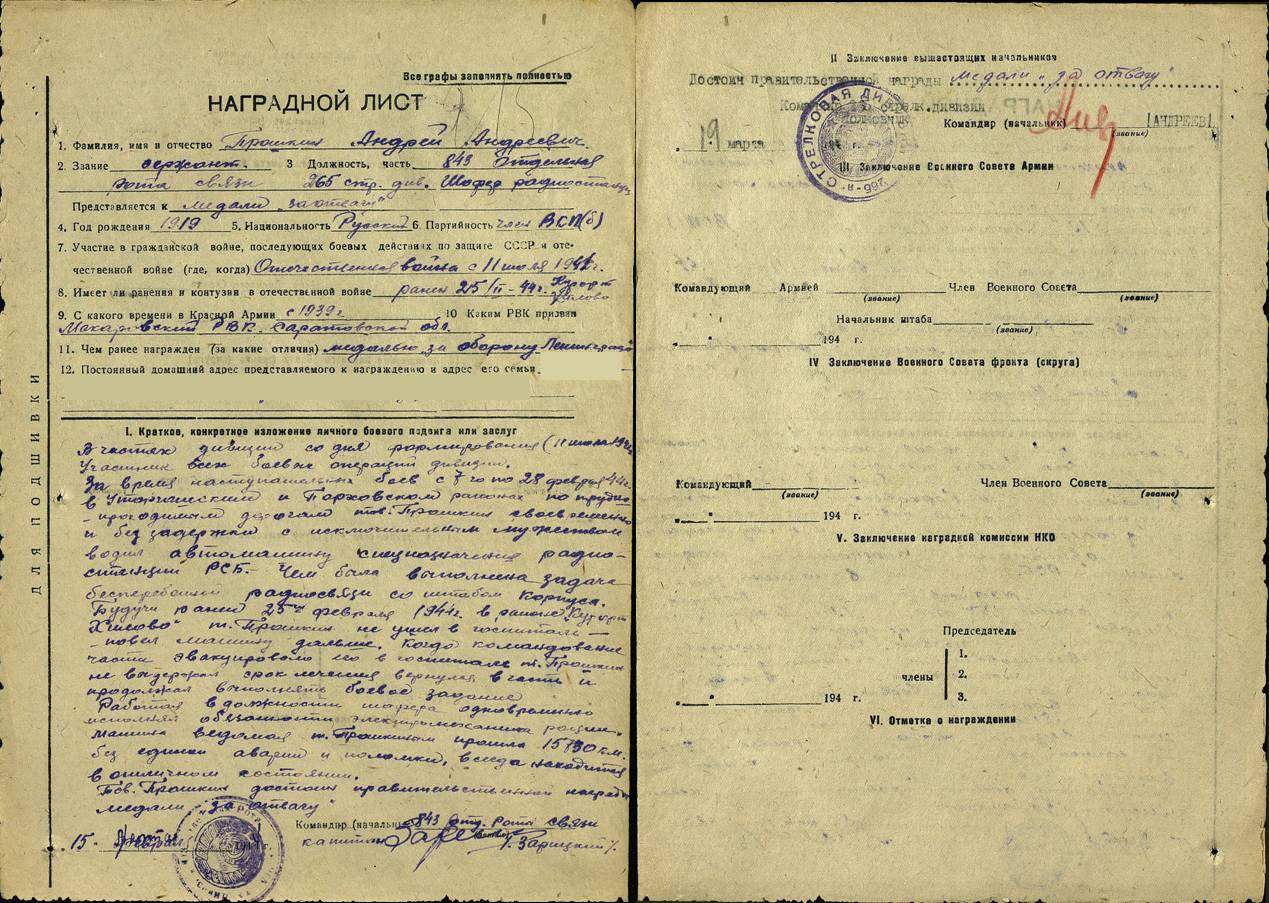 Все графы заполнять полностью
НАГРАДНОЙ ЛИСТ
1. Фамилия, имя и отчество Прошкин Андрей Андреевич
2. Звание сержант. 3 Должность, часть 843 Отдельная
рота связи 265 стр. див. Шофер радиостанции
Представляется к медали "за отвагу"
4. Год рождения 1919 5. Национальность Русский 6. Партийность член ВКП(б)
7. Участие в гражданской войне, последующих боевых действиях по защите СССР и оте-
чественной войне (где, когда) Отечественная война с 11 июля 1941г.
8. Имеет ли ранения и контузии в отечественной войне ранен 25/II-44г. Курорт
Хилово
9. С какого времени в Красной Армии с 1939г 10 Каким РВК призван
Макаровский РВК Саратовской обл.
11. Чем ранее награжден (за какие отличия) медалью "за оборону Ленинграда
12. Постоянный домашний адрес представляемого к награждению и адрес его семьи
I. Краткое, конкретное изложение личного боевого подвига или заслуг
В частях дивизии со дня формирования (11 июля 194
Участник всех боевых операций дивизии.
За время наступательных боев с 7го по 28 февраля 44г.
в Уторгошский и Порховском районах по трудно
-проходимым дорогам тов. Прошкин своевременно
и без задержки с исключительным мужеством
водил автомашину специазначения радио-
станции РСБ.- Чем была выполнена задача
бесперебойной радиосвязи со штабом Корпуса.
Будучи ранен 25го февраля 1944г. в районе "Курорт
Хилово" т. Прошкин не ушел в госпиталь-
-повел машину дальше. Когда командование
части эвакуировало его в госпиталь т. Прошкин
не выдержал срок лечения вернулся в часть и
продолжал выполнять боевое задание
Работая в должности шофера одновременно
исполнял обязанности электромеханика рации.
Машина ведомая т. Прошкиным прошла 15830 км.
без единой аварии и поломки, всегда находится
в отличном состоянии.
Тов. Прошкин достоин правительственной награды
медали "за отвагу"
Командир (начальник 843 отд. роты связи
15. марта 1944 капитан /. Зарицкий /.
ДЛЯ ПОДШИВКИ
II Заключение вышестоящих начальников
Достоин правительственной награды медали "за отвагу"
Командир стрелк. дивизии
Полковник Командир (начальник) /АНДРЕЕВ/
(звание)
19 марта
СТРЕЛКОВАЯ ДИВ
III. Заключение Военного Совета Армии
Командующий Армией Член Военного Совета
(звание) (звание)
Начальник штаба
(звание)
" " 194 г.
IV Заключение Военного Совета фронта (округа)
Командующий Член Военного Совета
(звание) (звание)
" " 194 г.
V. Заключение наградной комиссии НКО
Председатель
члены
1.
2.
3.
" " 194 г.
VI. Отметка о награждении